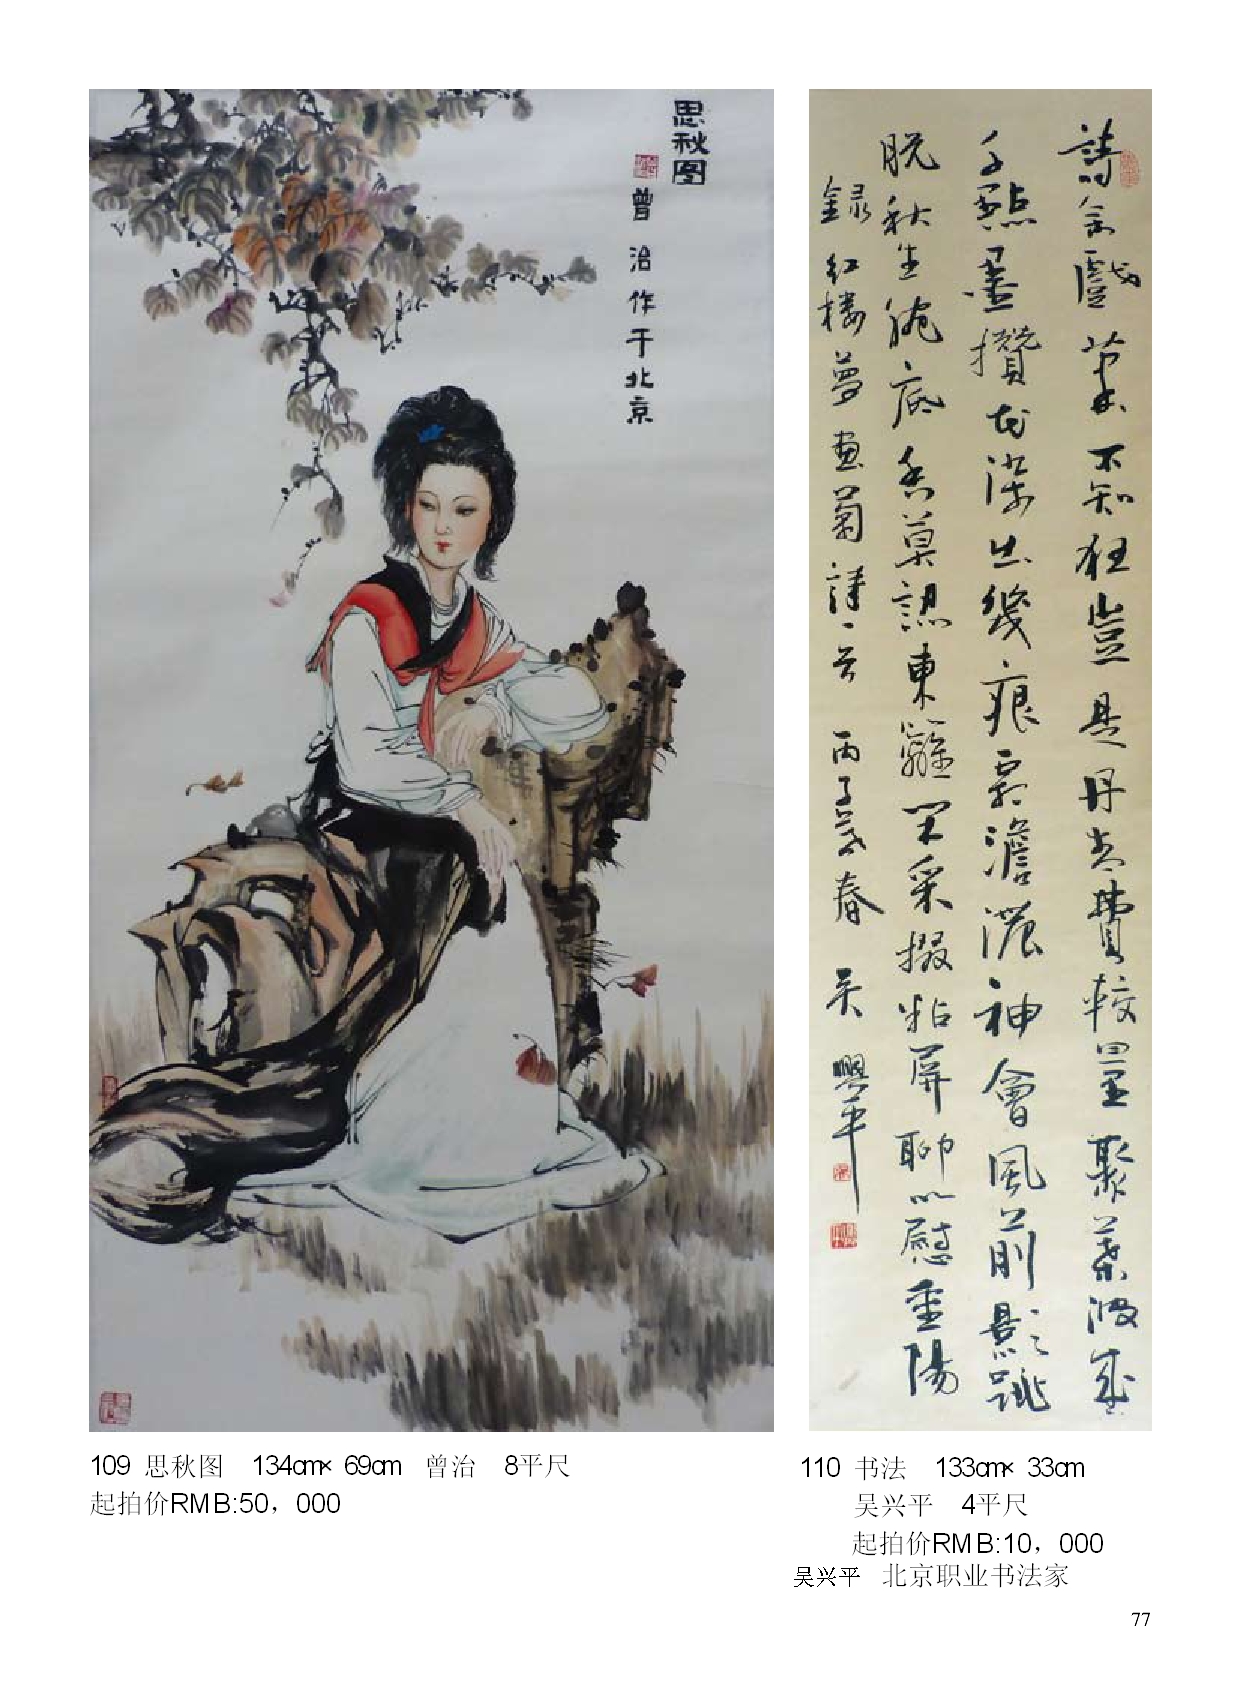 思秋图
曾治作于北京
詩余戲筆不知狂豈是丹青費較量聚葉潑成
千點墨攢花染出幾痕霜澹濃神會風前影跳
脱秋生腕底香莫認東籬閑采掇粘屏聊以慰重陽
録红楼夢畫菊詩一首 丙子歲春 吴興平
109 思秋图 134cm× 69cm 曾治 8平尺
起拍价RMB:50，000
110 书法 133cm× 33cm
吴兴平 4平尺
起拍价RMB:10，000
吴兴平 北京职业书法家
77